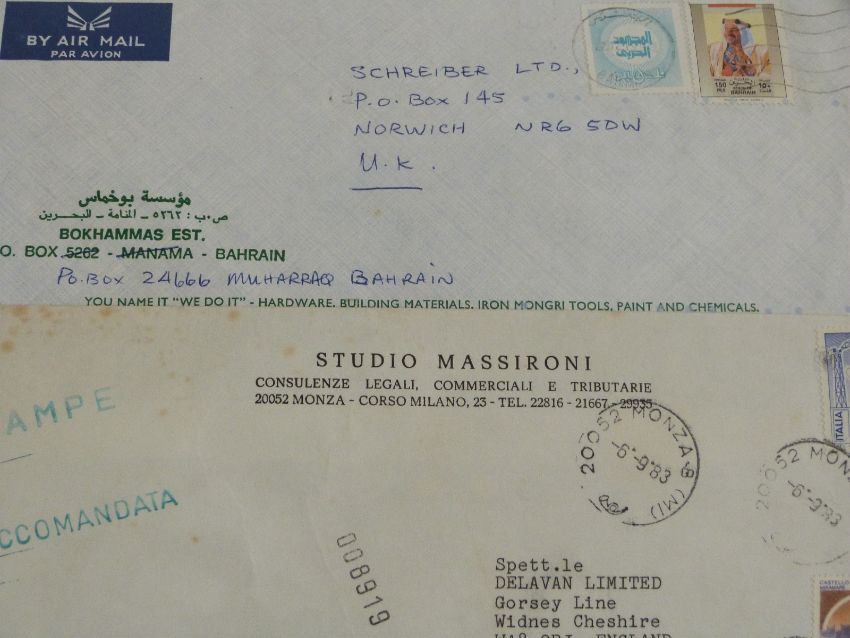 BY AIR MAIL
PAR AVION
SCHREIBER LTD.,
P.O. BOX 145
NORWICH NR6 5DW
U.K.
المجهود
الحربي
150
FILS
BAHRAIN
مؤسسة بوخماس
ص.ب: ٥٢٦٢ - المنامة - البحرين
BOKHAMMAS EST.
O. BOX 5262 - MANAMA - BAHRAIN
P.O. BOX 24666 MUHARRAQ BAHRAIN
YOU NAME IT "WE DO IT" - HARDWARE. BUILDING MATERIALS. IRON MONGRI TOOLS, PAINT AND CHEMICALS.
STUDIO MASSIRONI
CONSULENZE LEGALI, COMMERCIALI E TRIBUTARIE
20052 MONZA - CORSO MILANO, 23 - TEL. 22816 - 21667 - 29935
AMPE
CCOMANDATA
20052 MONZA (MI)
-6.-9.83
20052 MON
-6.-9.83
ITALIA
008919
CASTELLO
Spett.le
DELAVAN LIMITED
Gorsey Line
Widnes Cheshire
WA8 0RJ ENGLAND